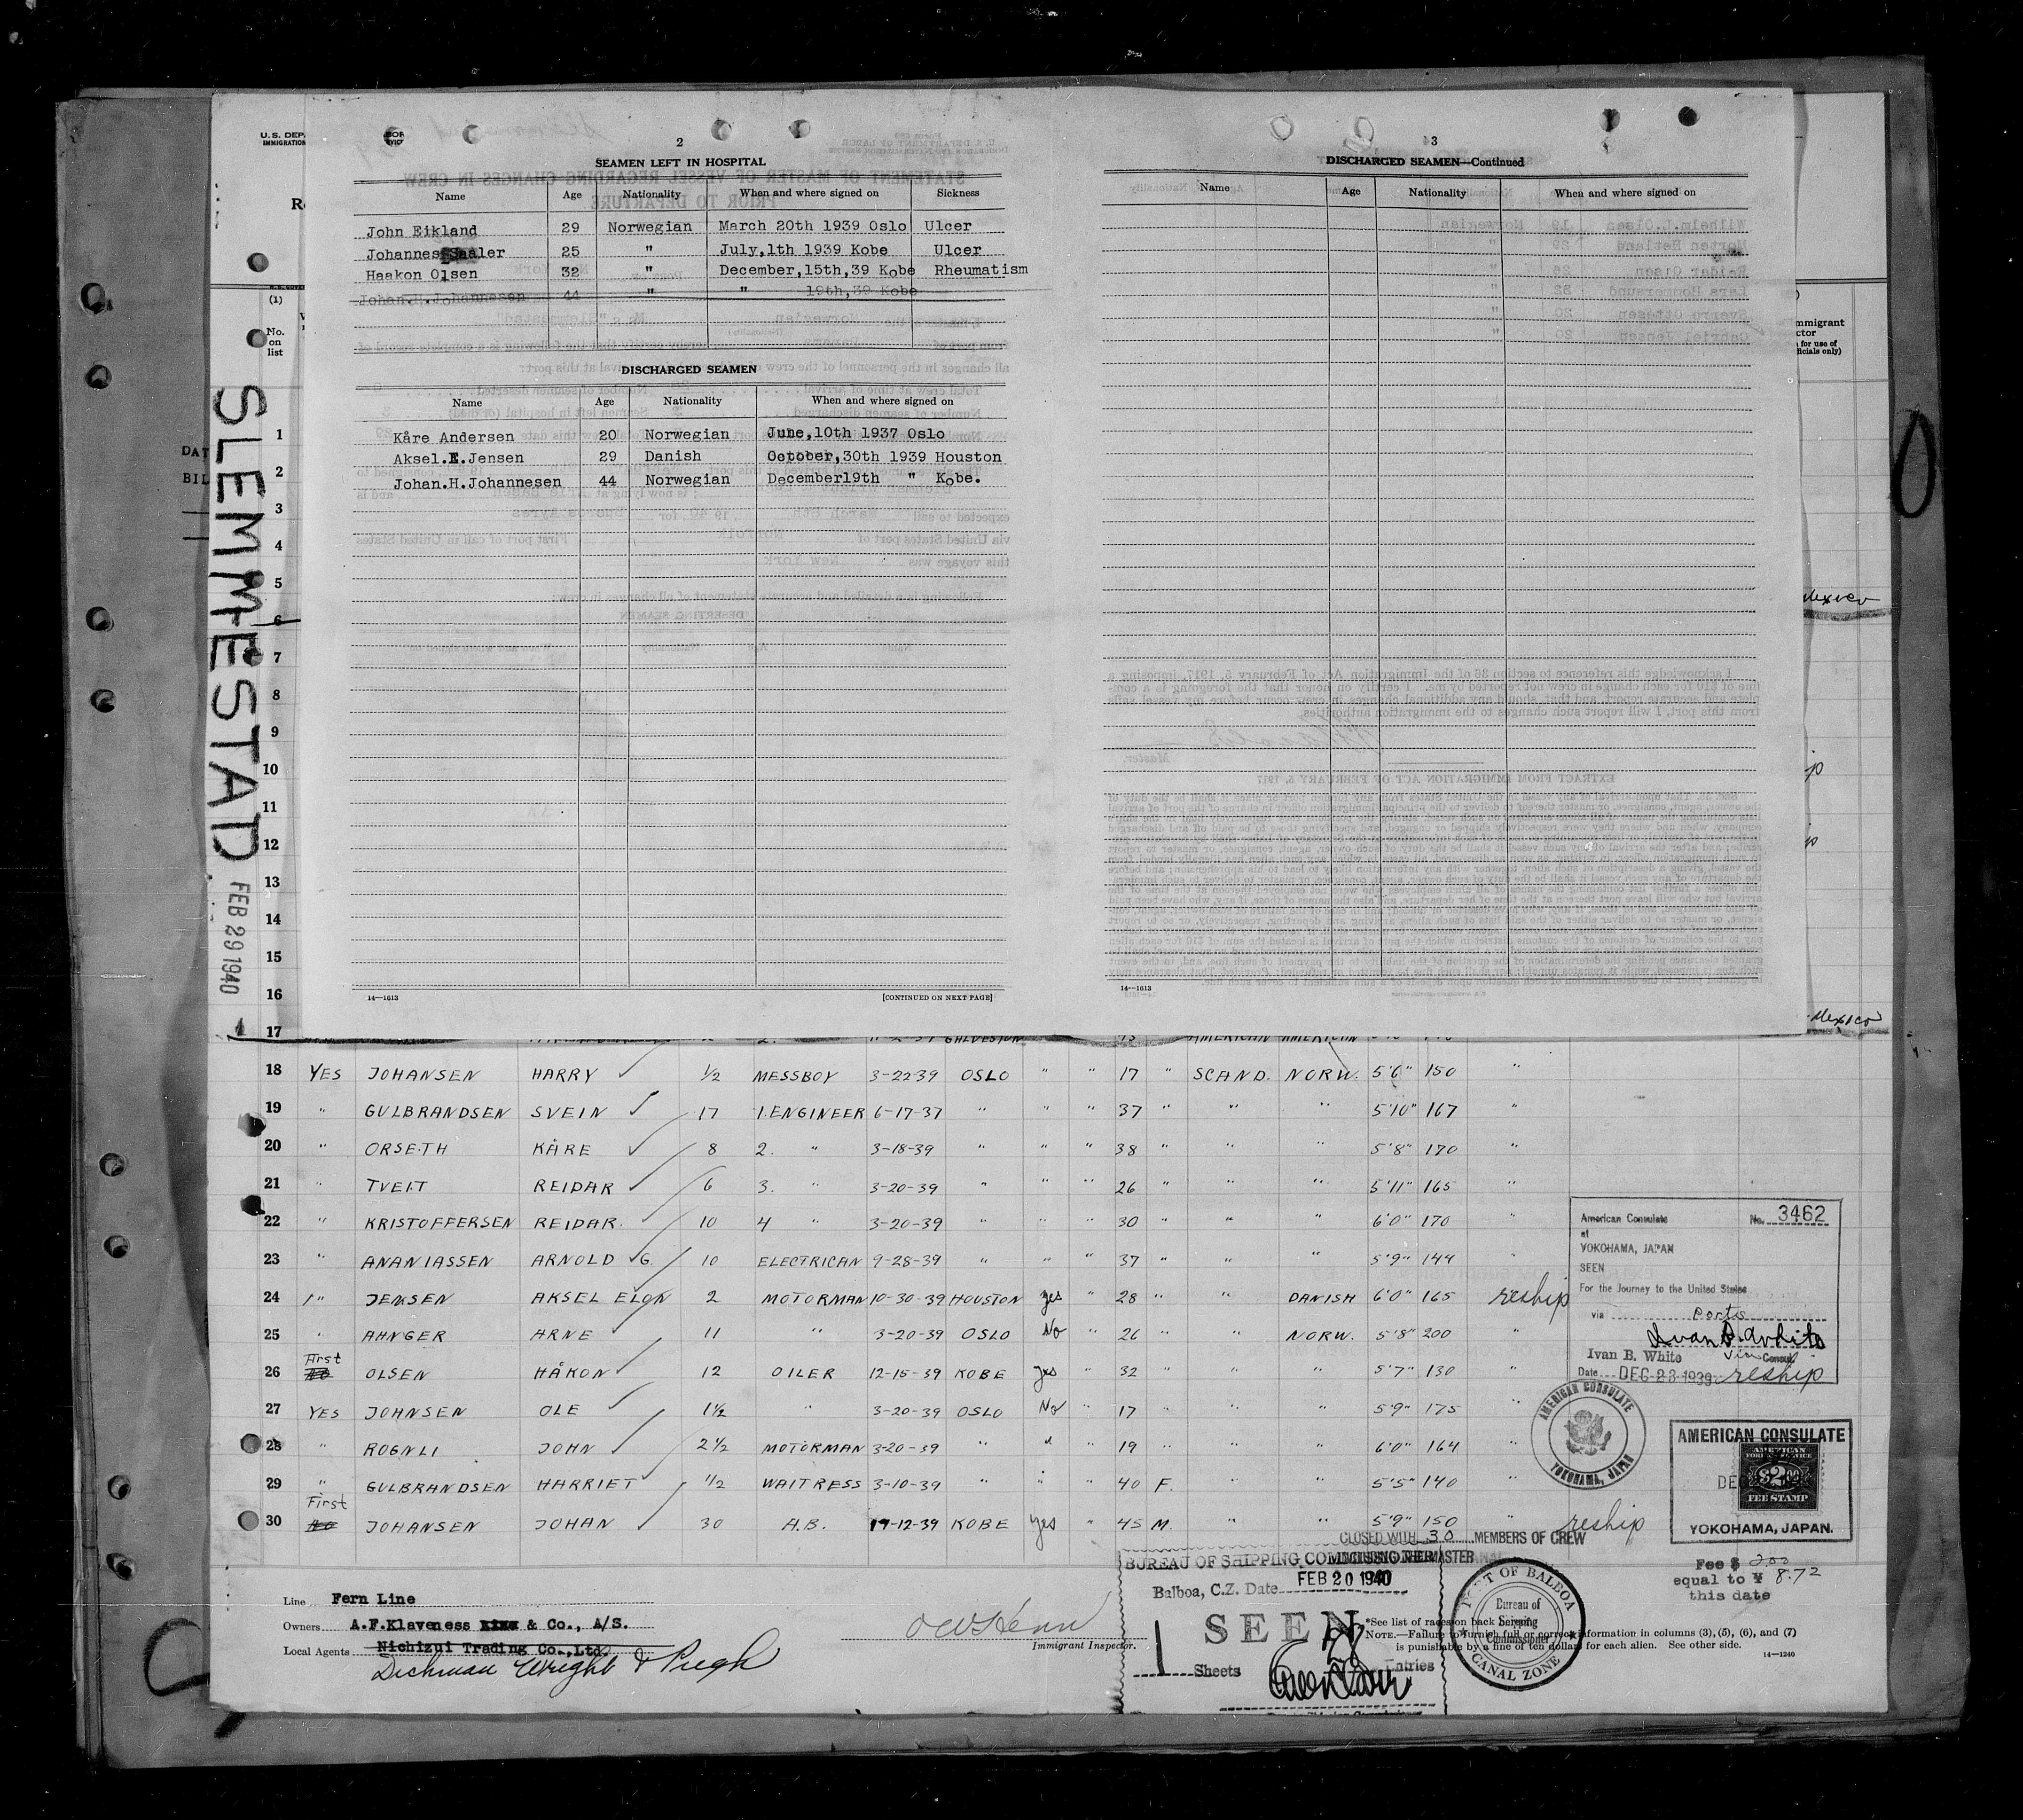 U.S. DEP
IMMIGRATION
2
SEAMEN LEFT IN HOSPITAL
Name Age Nationality When and where signed on Sickness
John Eikland 29 Norwegian March 20th 1939 Oslo Ulcer
Johannes Saaler 25 " July,1th 1939 Kobe Ulcer
Haakon Olsen 32 " December,15th,39 Kobe Rheumatism
Johan.H.Johannesen 44 " " 19th,39 Kobe
DISCHARGED SEAMEN
Name Age Nationality When and where signed on
Kåre Andersen 20 Norwegian June,10th 1937 Oslo
Aksel.E.Jensen 29 Danish October,30th 1939 Houston
Johan.H.Johannesen 44 Norwegian December19th " Kobe.
14—1613 [CONTINUED ON NEXT PAGE]
3
DISCHARGED SEAMEN—Continued
Name Age Nationality When and where signed on
14—1613
(1)
No.
on
list
mmigrant
ctor
for use of
ficials only)
DAT
BIL
SLEMMESTAD
FEB 29 1940
Mexico
Mexico
1
2
3
4
5
6
7
8
9
10
11
12
13
14
15
16
17 GALVESTON AMERICAN AMERICAN
18 YES JOHANSEN HARRY 1/2 MESSBOY 3-22-39 OSLO " " 17 " SCAND. NORW. 5'6" 150 "
19 " GULBRANDSEN SVEIN 17 1.ENGINEER 6-17-37 " " " 37 " " " 5'10" 167 "
20 " ORSETH KÅRE 8 2. " 3-18-39 " " " 38 " " " 5'8" 170 "
21 " TVEIT REIDAR 6 3. " 3-20-39 " " " 26 " " " 5'11" 165 "
22 " KRISTOFFERSEN REIDAR. 10 4 " 3-20-39 " " " 30 " " " 6'0" 170 "
23 " ANANIASSEN ARNOLD G. 10 ELECTRICAN 9-28-39 " " " 37 " " " 5'9" 144 "
24 " JENSEN AKSEL ELON 2 MOTORMAN 10-30-39 HOUSTON yes " 28 " " DANISH 6'0" 165 reship
25 " AHNGER ARNE 11 " 3-20-39 OSLO No " 26 " " NORW. 5'8" 200 "
26 First OLSEN HÅKON 12 OILER 12-15-39 KOBE yes 32 " " " 5'7" 130 " reship
27 YES JOHNSEN OLE 1 1/2 " 3-20-39 OSLO No " 17 " " " 5'9" 175 "
28 " ROGNLI JOHN 2 1/2 MOTORMAN 3-20-39 " " " 19 " " " 6'0" 164 "
29 " GULBRANDSEN HARRIET 1/2 WAITRESS 3-10-39 " " " 40 F. " " 5'5" 140 "
30 First JOHANSEN JOHAN 30 A.B. 19-12-39 KOBE Yes " 45 M. " " 5'9" 150 " reship
American Consulate No. 3462
at
YOKOHAMA, JAPAN
SEEN
For the Journey to the United States
via ports
Ivan B. White
Ivan B. White Vice Consul.
Date DEC 23 1939
AMERICAN CONSULATE
YOKOHAMA, JAPAN
AMERICAN CONSULATE
AMERICAN
FOREIGN SERVICE
$2.00
FEE STAMP
YOKOHAMA, JAPAN.
Fee $ 2.00
equal to ¥ 8.72
this date
CLOSED WITH 30 MEMBERS OF CREW
BUREAU OF SHIPPING COMMISSIONER
Balboa, C.Z. Date FEB 20 1940
SEEN
1 Sheets Entries
PORT OF BALBOA
Bureau of
Shipping
Commissioner
CANAL ZONE
Line Fern Line
Owners A.F.Klaveness & Co., A/S.
Local Agents Nichizui Trading Co.,Ltd.
Dichman Wright & Pugh
Immigrant Inspector.
*See list of races on back hereof.
NOTE.—Failure to furnish full or correct information in columns (3), (5), (6), and (7)
is punishable by a fine of ten dollars for each alien. See other side.
14—1240